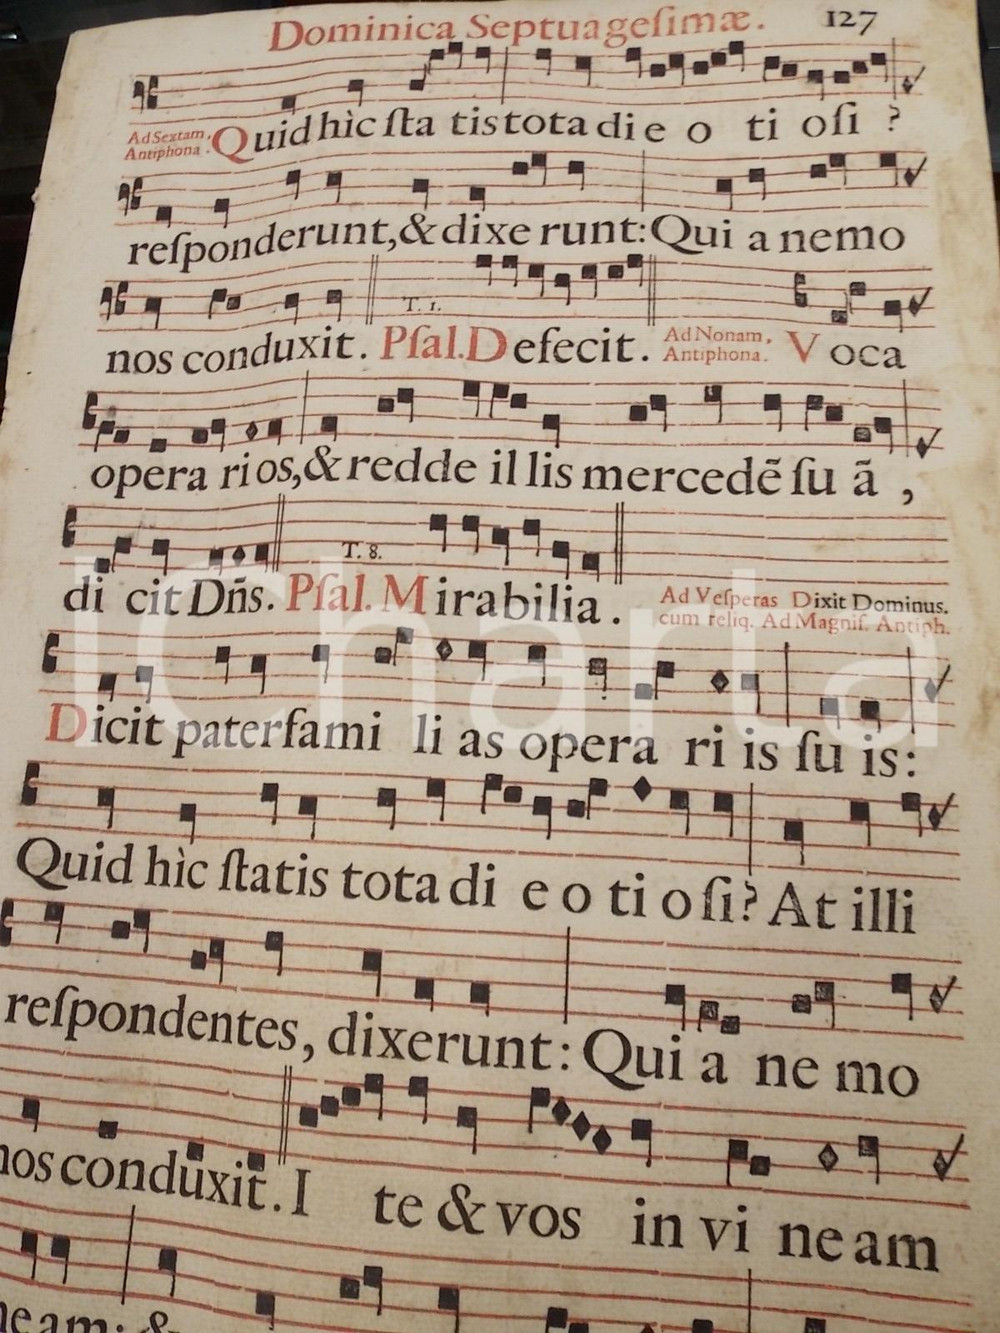 Dominica Septuageſimæ. 127
Ad Sextam, Antiphona. Quid hìc ſta tis tota di e o ti oſi ?
reſponderunt, & dixe runt: Qui a nemo
T. 1.
nos conduxit. Pſal. Defecit. Ad Nonam, Antiphona. Voca
opera ri os, & redde il lis mercedẽ ſu ã ,
T. 8.
di cit Dñs. Pſal. Mirabilia. Ad Veſperas Dixit Dominus.
cum reliq. Ad Magnif. Antiph.
Dicit paterfami li as opera ri is ſu is:
Quid hìc ſtatis tota di e o ti o ſi? At illi
reſpondentes, dixerunt: Qui a ne mo
nos conduxit. I te & vos in vi neam
neam: &
iCharta